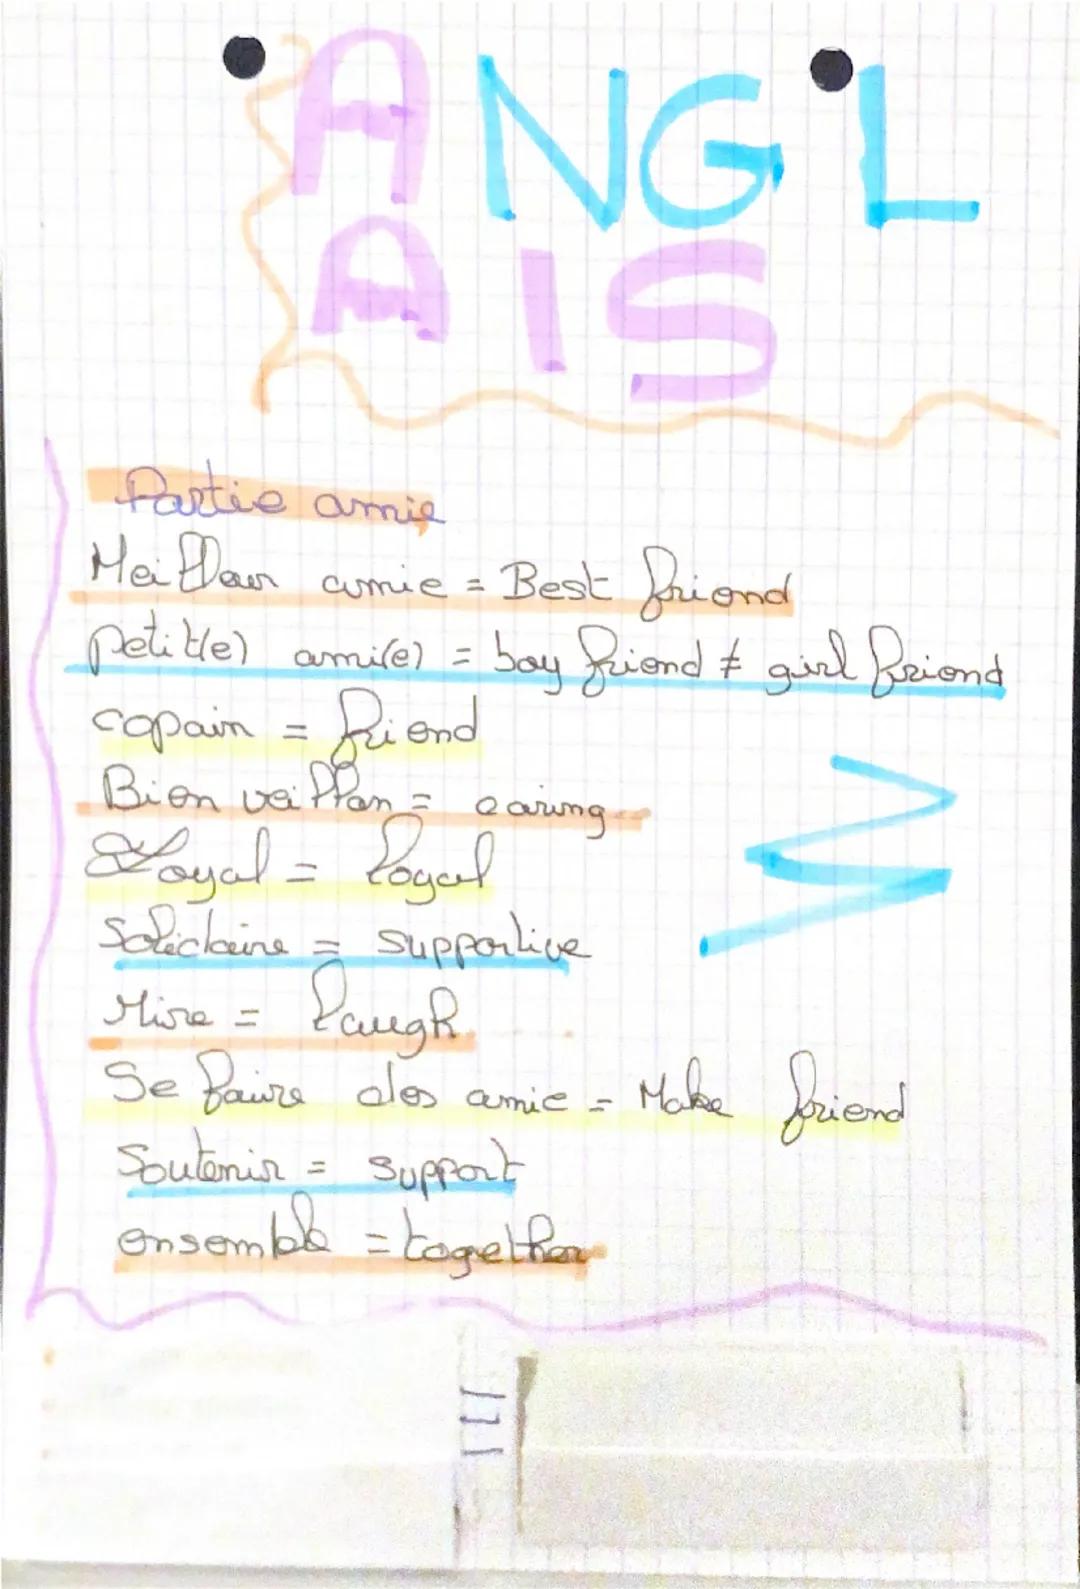 ANGL
AIS
Partie amie
Meilleur amie = Best friend
petit(e) ami(e) = boy friend ≠ girl friend
copain = friend
Bien veillan = caring
Loyal = loyal
Solidaire = supportive
Rire = laugh
Se faire des amie = Make friend
Soutenir = support
ensemble = together